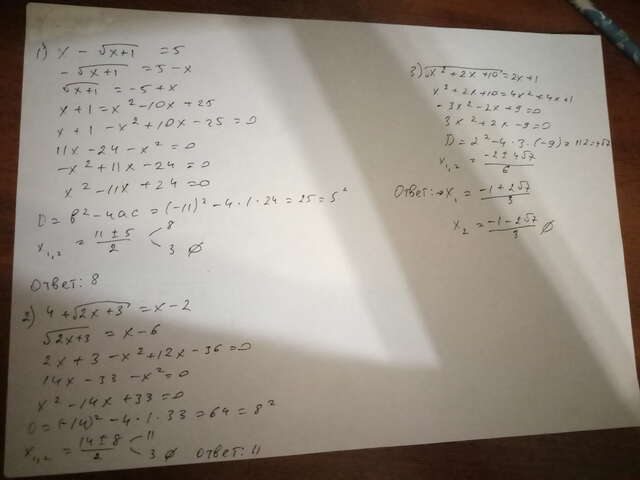 1) x - √x+1 = 5
-√x+1 = 5-x
√x+1 = -5+x
x+1 = x²-10x+25
x+1-x²+10x-25=0
11x-24-x²=0
-x²+11x-24=0
x²-11x+24=0
D=b²-4ac=(-11)²-4·1·24=25=5²
x₁,₂ = 11±5/2 < 8
3 ∅
Ответ: 8
2) 4+√2x+3 = x-2
√2x+3 = x-6
2x+3-x²+12x-36=0
14x-33-x²=0
x²-14x+33=0
D=(-14)²-4·1·33=64=8²
x₁,₂ = 14±8/2 < 11
3 ∅ Ответ: 11
3) √x²+2x+10=2x+1
x²+2x+10=4x²+4x+1
-3x²-2x+9=0
3x²+2x-9=0
D=2²-4·3·(-9)=112=4√7
x₁,₂ = -2±4√7/6
Ответ: x₁ = -1+2√7/3
x₂ = -1-2√7/3 ∅